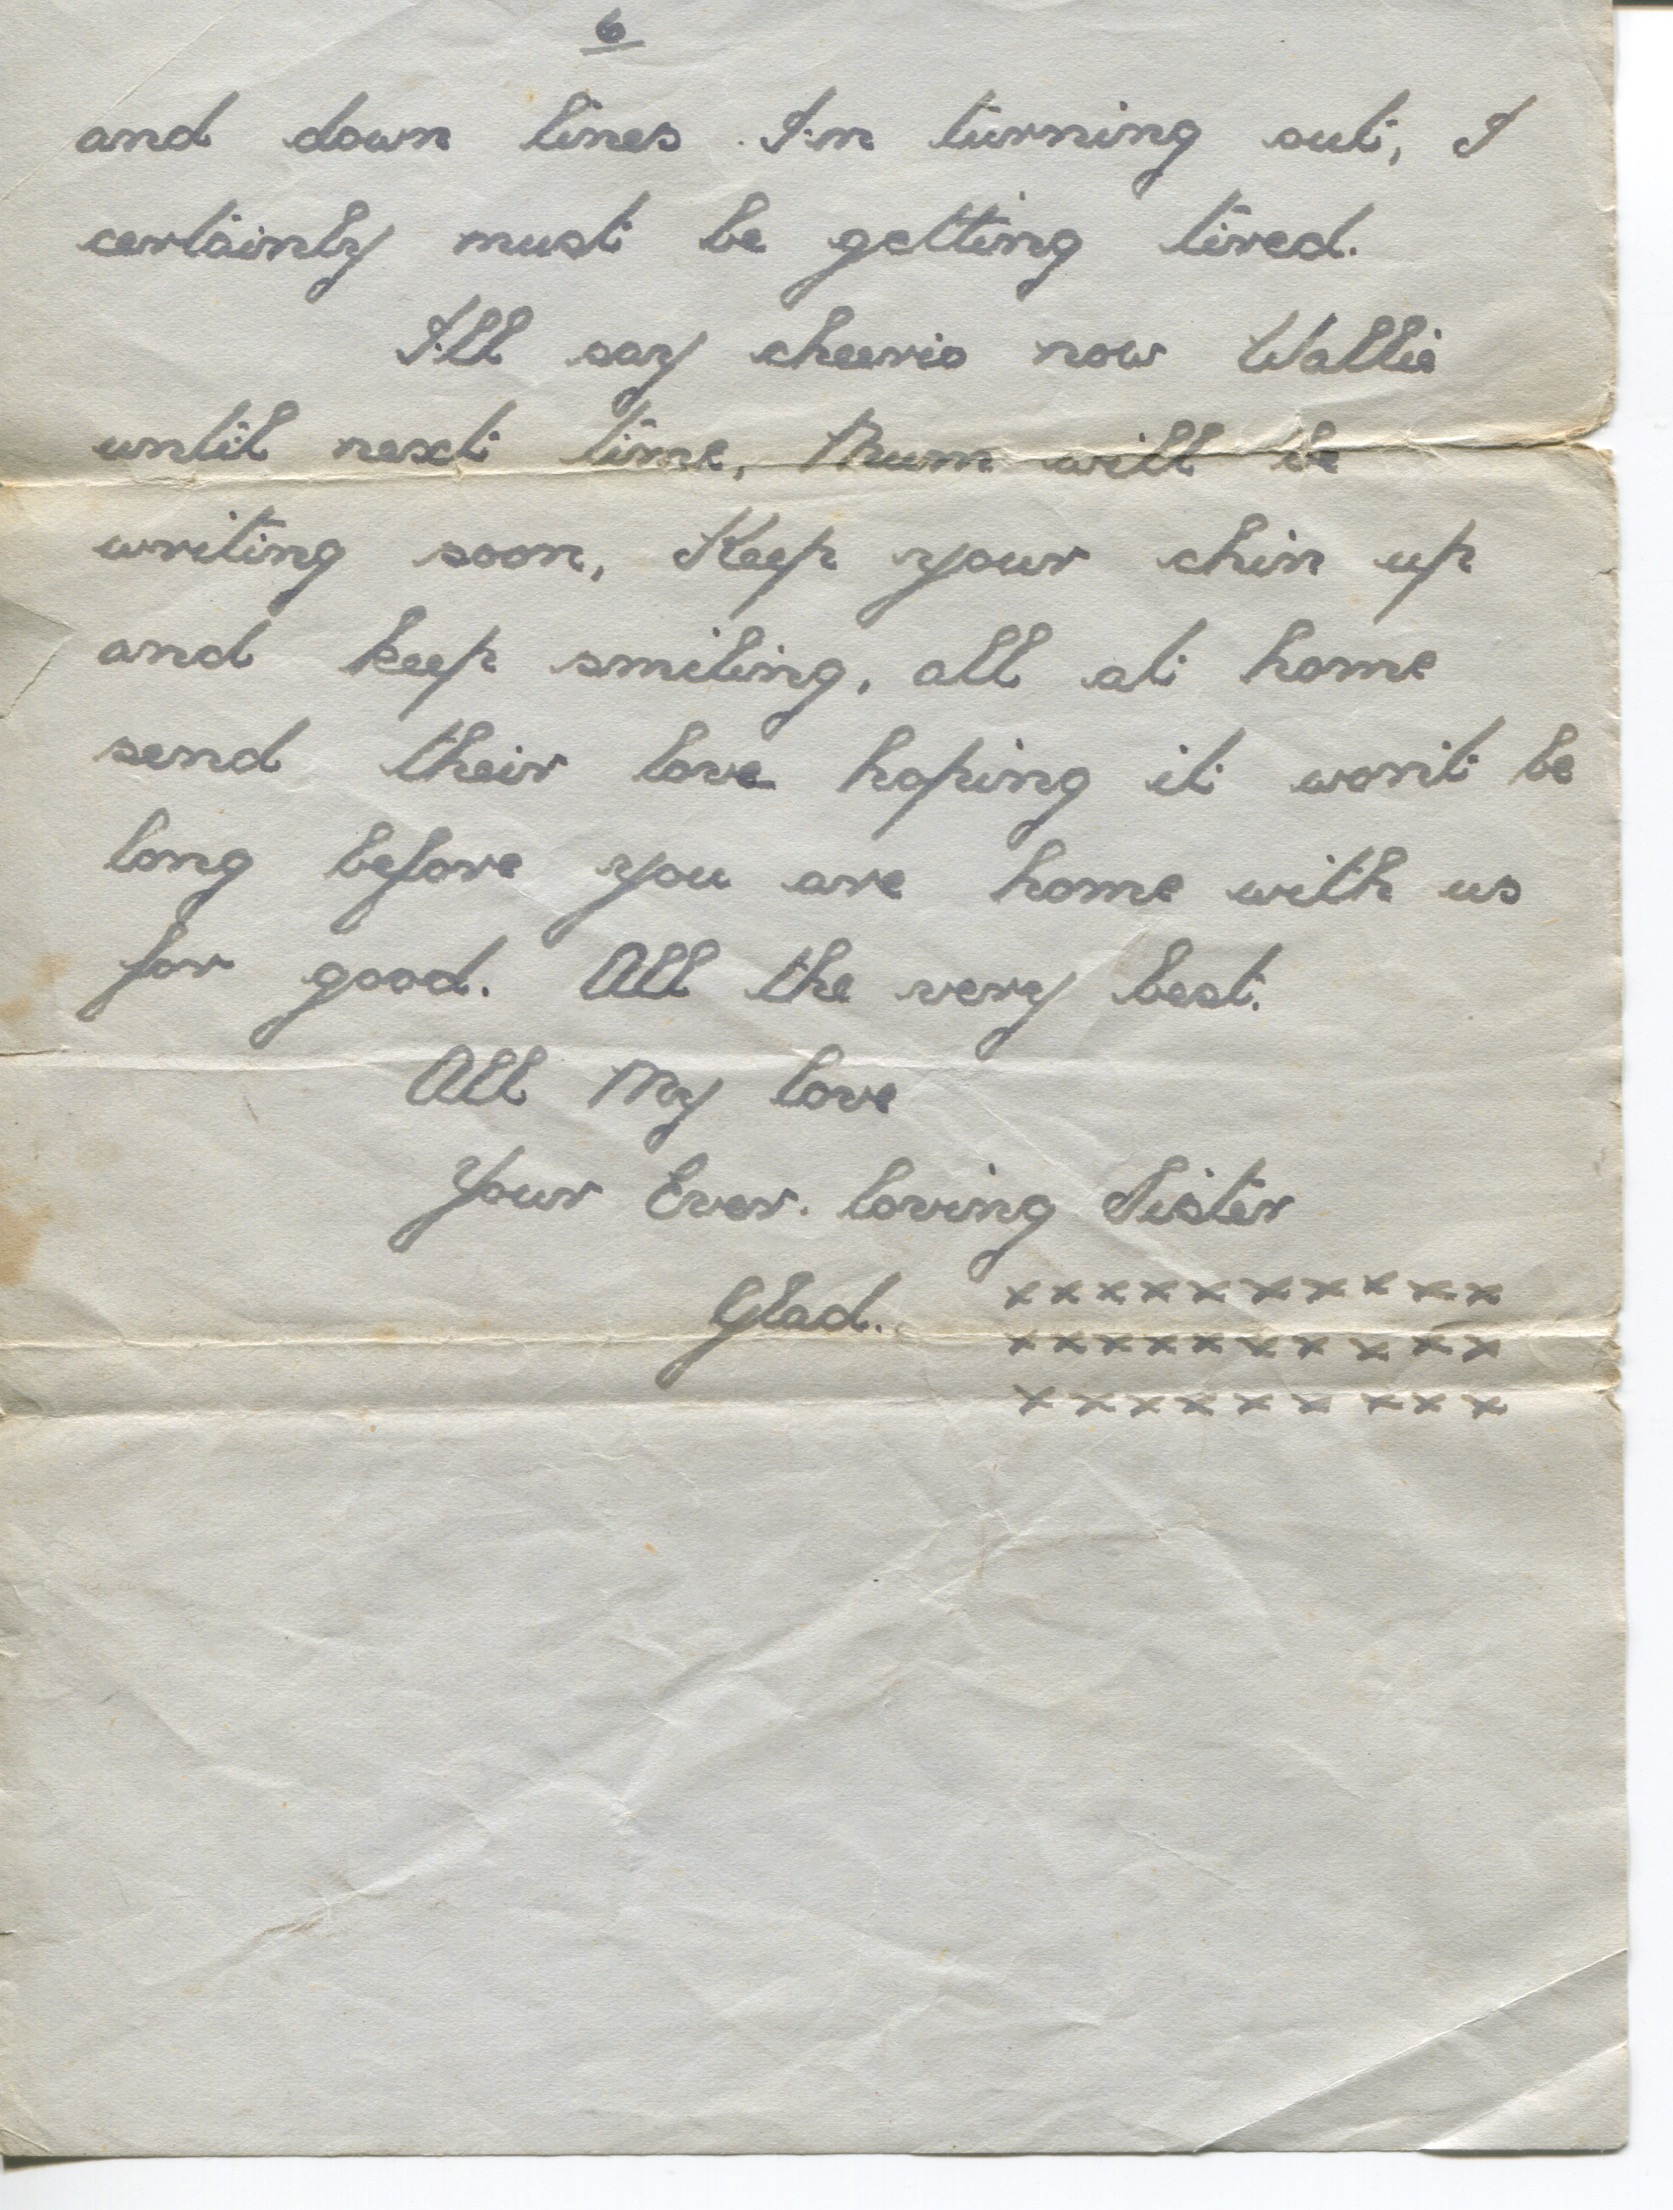 6
and down lines I'm turning out, I
certainly must be getting tired.
I'll say cheerio now Wallie
until next time, Mum will be
writing soon, Keep your chin up
and keep smiling, all at home
send their love hoping it won't be
long before you are home with us
for good. All the very best.
All My love
Your Ever. loving Sister
Glad. x x x x x x x x x x x
x x x x x x x x x x x
x x x x x x x x x